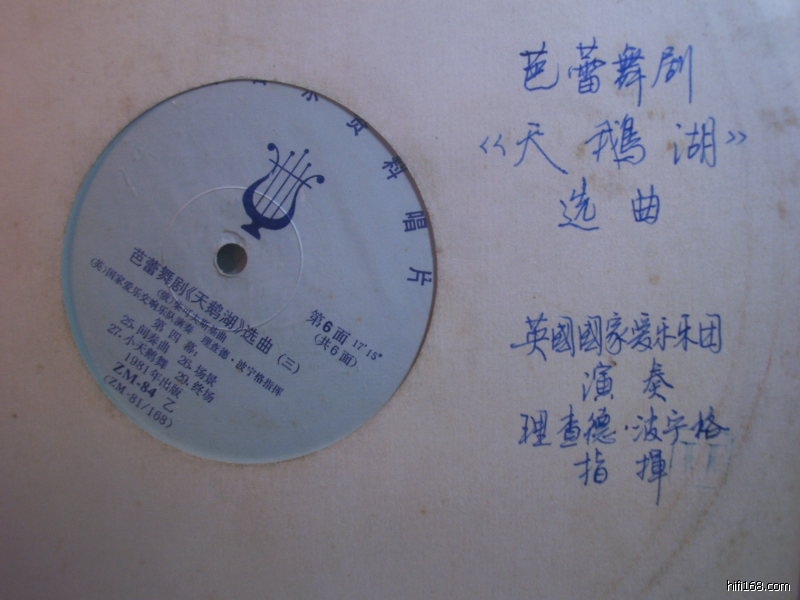 示资料唱片
芭蕾舞剧《天鹅湖》选曲(三)
(俄)柴可夫斯基曲
(英)国家爱乐交响乐队演奏 理查德·波宁格指挥
第6面 17′15″
(共6面)
第四幕:
25.间奏曲 26.场景
27.小天鹅舞 29.终场
1981年出版
ZM-84 乙
(ZM-81/168)
芭蕾舞剧
《天鵝湖》
选曲
英國國家爱乐乐团
演奏
理查德·波宁格
指揮
hifi168.com